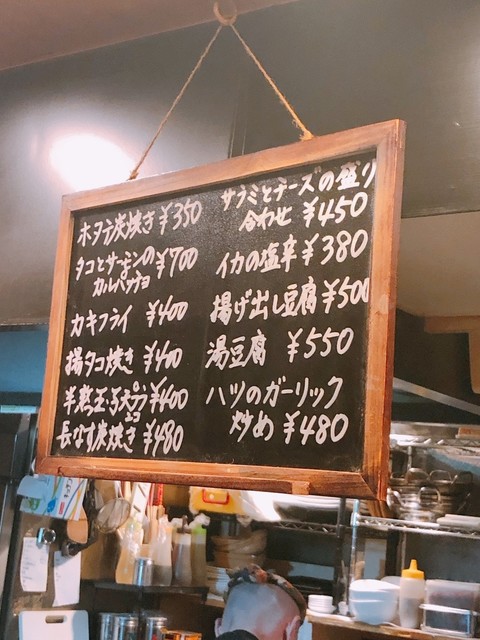 ホタテ炭焼き ¥350
タコとサーモンの
カルパッチョ ¥700
カキフライ ¥400
揚タコ焼き ¥400
半熟玉子天プラ ¥400
長なす炭焼き ¥480
サラミとチーズの盛り
合わせ ¥450
イカの塩辛 ¥380
揚げ出し豆腐 ¥500
湯豆腐 ¥550
ハツのガーリック
炒め ¥480